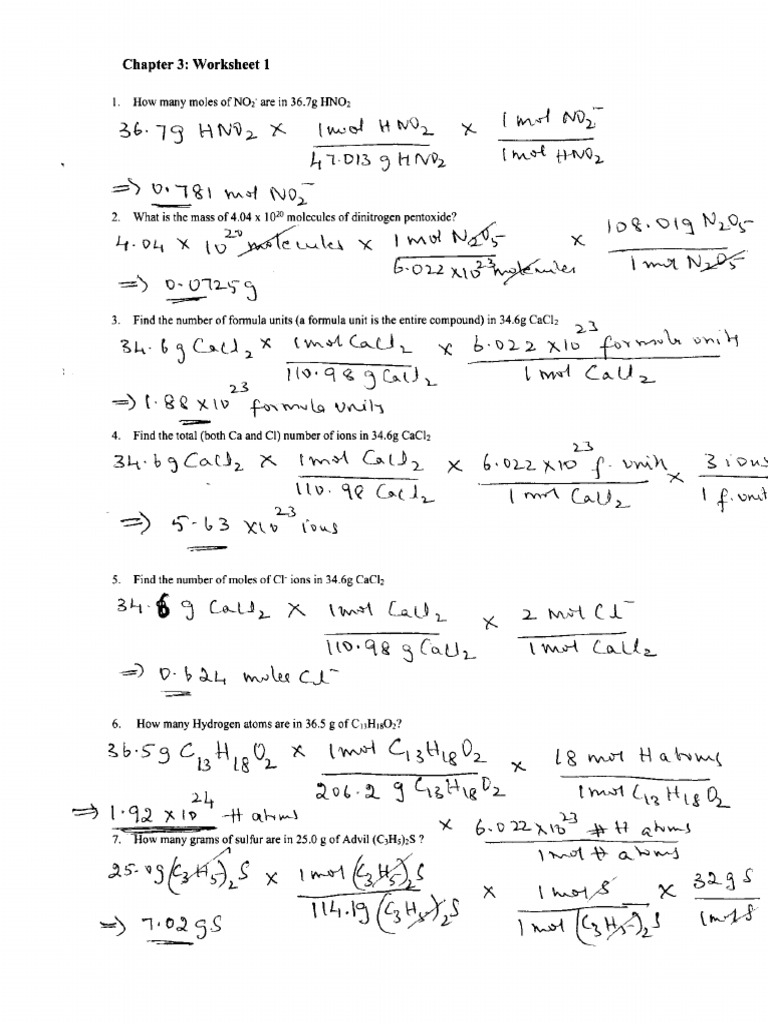 Chapter 3: Worksheet 1
1. How many moles of NO₂⁻ are in 36.7g HNO₂
36.7g HNO₂ × 1mol HNO₂ / 47.013 g HNO₂ × 1 mol NO₂⁻ / 1mol HNO₂
⇒ 0.781 mol NO₂⁻
2. What is the mass of 4.04 x 10²⁰ molecules of dinitrogen pentoxide?
4.04 × 10²⁰ molecules × 1 mol N₂O₅ / 6.022 ×10²³ molecules × 108.01g N₂O₅ / 1 mol N₂O₅
⇒ 0.0725g
3. Find the number of formula units (a formula unit is the entire compound) in 34.6g CaCl₂
34.6g CaCl₂ × 1molCaCl₂ / 110.98 gCaCl₂ × 6.022 ×10²³ formula units / 1 mol CaCl₂
⇒ 1.88 ×10²³ formula units
4. Find the total (both Ca and Cl) number of ions in 34.6g CaCl₂
34.6gCaCl₂ × 1mol CaCl₂ / 110.98 CaCl₂ × 6.022 ×10²³ f. unit / 1 mol CaCl₂ × 3 ions / 1 f.unit
⇒ 5.63 ×10²³ ions
5. Find the number of moles of Cl⁻ ions in 34.6g CaCl₂
34.6 g CaCl₂ × 1mol CaCl₂ / 110.98 g CaCl₂ × 2 mol Cl⁻ / 1mol CaCl₂
⇒ 0.624 moles Cl⁻
6. How many Hydrogen atoms are in 36.5 g of C₁₃H₁₈O₂?
36.5g C₁₃H₁₈O₂ × 1mol C₁₃H₁₈O₂ / 206.2 g C₁₃H₁₈O₂ × 18 mol H atoms / 1mol C₁₃H₁₈O₂
⇒ 1.92 ×10²⁴ H atoms × 6.022×10²³ # H atoms / 1mol H atoms
7. How many grams of sulfur are in 25.0 g of Advil (C₃H₅)₂S ?
25.0g(C₃H₅)₂S × 1mol(C₃H₅)₂S / 114.1g(C₃H₅)₂S × 1 mol S / 1mol (C₃H₅)₂S × 32g S / 1mol S
⇒ 7.02gS